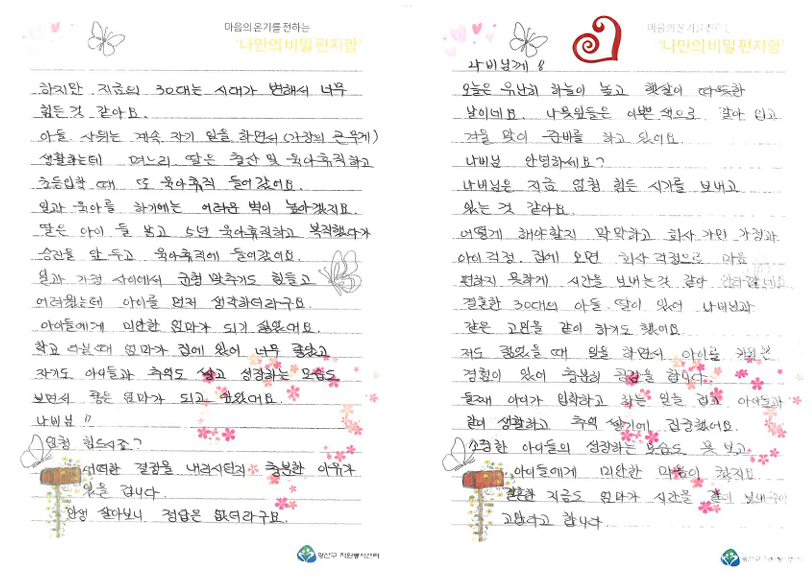 마음의 온기를 전하는
'나만의 비밀 편지함'
하지만 지금의 30대는 시대가 변해서 너무
힘든것 같아요.
아들. 사위는 계속 자기 일을 하면서 (가장의 큰 무게)
생활하는데 며느리. 딸은 출산 및 육아휴직하고
초등입학 때 또 육아휴직 들어갔어요.
일과 육아를 하기에는 어려운 벽이 높아겠지요.
딸은 아이 둘 낳고 5년 육아휴직하고 복직했다가
승진을 앞 두고 육아휴직에 들어갔어요.
일과 가정 사이에서 균형 맞추기도 힘들고
어려웠는데 아이를 먼저 생각하더라구요.
아이들에게 미안한 엄마가 되기 싫었어요.
학교 다닐때 엄마가 집에 있어 너무 좋았고
자기도 아이들과 추억도 쌓고 성장하는 모습도
보면서 좋은 엄마가 되고 싶었어요.
나비님 !!
엄청 힘드시죠?
어떠한 결정을 내리시던지 충분한 이유가
있을 겁니다.
인생 살다보니 정답은 없더라구요.
황산구 자원봉사센터
마음의 온기를 전하는
'나만의 비밀 편지함'
나비님께 !!
오늘은 유난히 하늘이 높고 햇살이 따뜻한
날이네요. 나뭇잎들은 이쁜 색으로 갈아 입고
겨울 맞이 준비를 하고 있어요.
나비님 안녕하세요?
나비님은 지금 엄청 힘든 시기를 보내고
있는 것 같아요.
어떻게 해야할지 막막하고 회사 가면 가정과
아이 걱정. 집에 오면 회사 걱정으로 마음
편하지 못하게 시간을 보내는것 같아 안타깝네요.
결혼한 30대의 아들. 딸이 있어 나비님과
같은 고민을 같이 하기도 했어요.
저도 젊었을 때 일을 하면서 아이를 키워 본
경험이 있어 충분히 공감을 합니다.
둘째 아이가 입학하고 하는 일을 접고 아이들과
같이 생활하고 추억 쌓기에 집중했어요.
소중한 아이들의 성장하는 모습도 못 보고
아이들에게 미안한 마음이 컸지요
결혼한 지금도 엄마가 시간을 같이 보내주어
고맙다고 합니다.
황산구 자원봉사센터